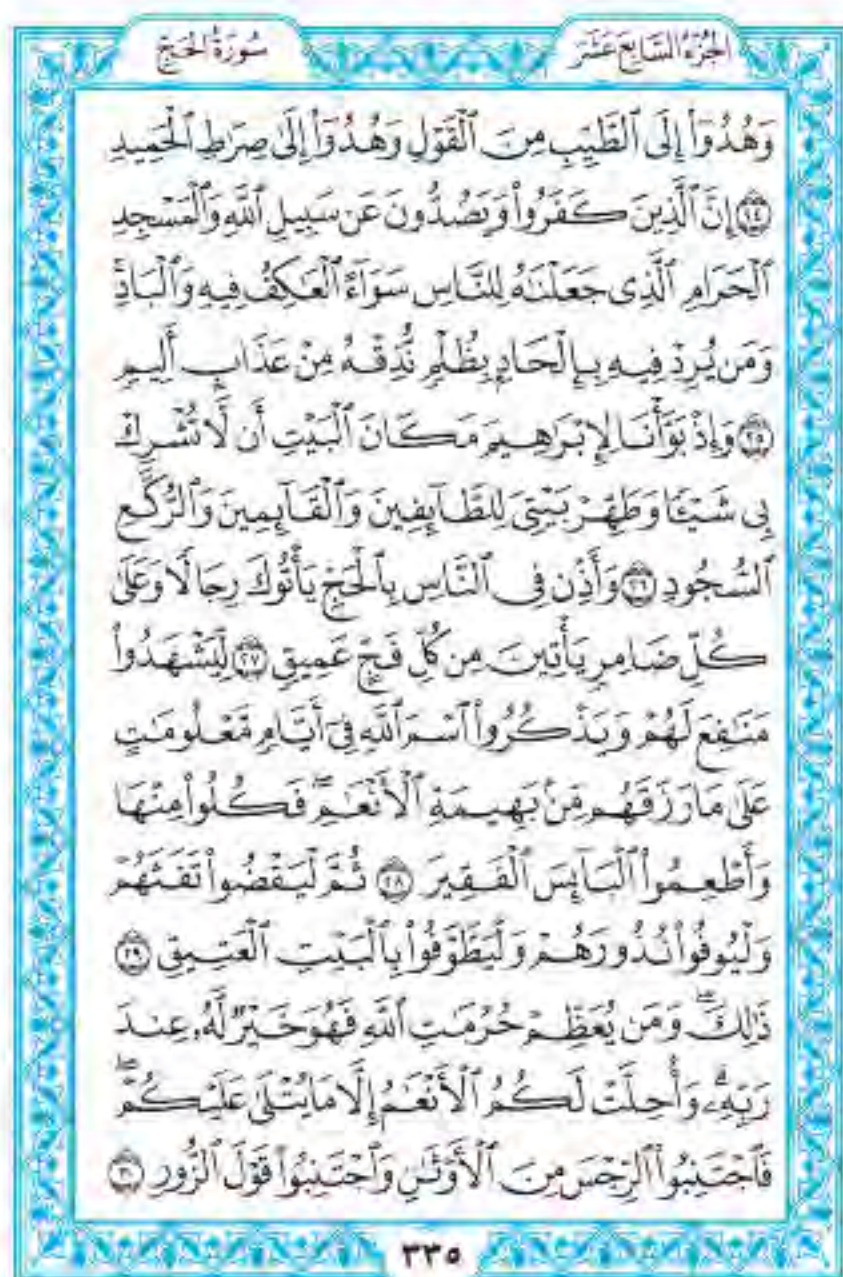 الجُزْءُ السَّابِعَ عَشَرَ سُورَةُ الحَجِّ
وَهُدُوٓا۟ إِلَى ٱلطَّيِّبِ مِنَ ٱلْقَوْلِ وَهُدُوٓا۟ إِلَىٰ صِرَٰطِ ٱلْحَمِيدِ
۝٢٤ إِنَّ ٱلَّذِينَ كَفَرُوا۟ وَيَصُدُّونَ عَن سَبِيلِ ٱللَّهِ وَٱلْمَسْجِدِ
ٱلْحَرَامِ ٱلَّذِى جَعَلْنَٰهُ لِلنَّاسِ سَوَآءً ٱلْعَٰكِفُ فِيهِ وَٱلْبَادِ ۚ
وَمَن يُرِدْ فِيهِ بِإِلْحَادٍۭ بِظُلْمٍ نُّذِقْهُ مِنْ عَذَابٍ أَلِيمٍ
۝٢٥ وَإِذْ بَوَّأْنَا لِإِبْرَٰهِيمَ مَكَانَ ٱلْبَيْتِ أَن لَّا تُشْرِكْ
بِى شَيْـًٔا وَطَهِّرْ بَيْتِىَ لِلطَّآئِفِينَ وَٱلْقَآئِمِينَ وَٱلرُّكَّعِ
ٱلسُّجُودِ ۝٢٦ وَأَذِّن فِى ٱلنَّاسِ بِٱلْحَجِّ يَأْتُوكَ رِجَالًا وَعَلَىٰ
كُلِّ ضَامِرٍ يَأْتِينَ مِن كُلِّ فَجٍّ عَمِيقٍ ۝٢٧ لِّيَشْهَدُوا۟
مَنَٰفِعَ لَهُمْ وَيَذْكُرُوا۟ ٱسْمَ ٱللَّهِ فِىٓ أَيَّامٍ مَّعْلُومَٰتٍ
عَلَىٰ مَا رَزَقَهُم مِّنۢ بَهِيمَةِ ٱلْأَنْعَٰمِ ۖ فَكُلُوا۟ مِنْهَا
وَأَطْعِمُوا۟ ٱلْبَآئِسَ ٱلْفَقِيرَ ۝٢٨ ثُمَّ لْيَقْضُوا۟ تَفَثَهُمْ
وَلْيُوفُوا۟ نُذُورَهُمْ وَلْيَطَّوَّفُوا۟ بِٱلْبَيْتِ ٱلْعَتِيقِ ۝٢٩
ذَٰلِكَ ۖ وَمَن يُعَظِّمْ حُرُمَٰتِ ٱللَّهِ فَهُوَ خَيْرٌ لَّهُۥ عِندَ
رَبِّهِۦ ۗ وَأُحِلَّتْ لَكُمُ ٱلْأَنْعَٰمُ إِلَّا مَا يُتْلَىٰ عَلَيْكُمْ ۖ
فَٱجْتَنِبُوا۟ ٱلرِّجْسَ مِنَ ٱلْأَوْثَٰنِ وَٱجْتَنِبُوا۟ قَوْلَ ٱلزُّورِ ۝٣٠
٣٣٥